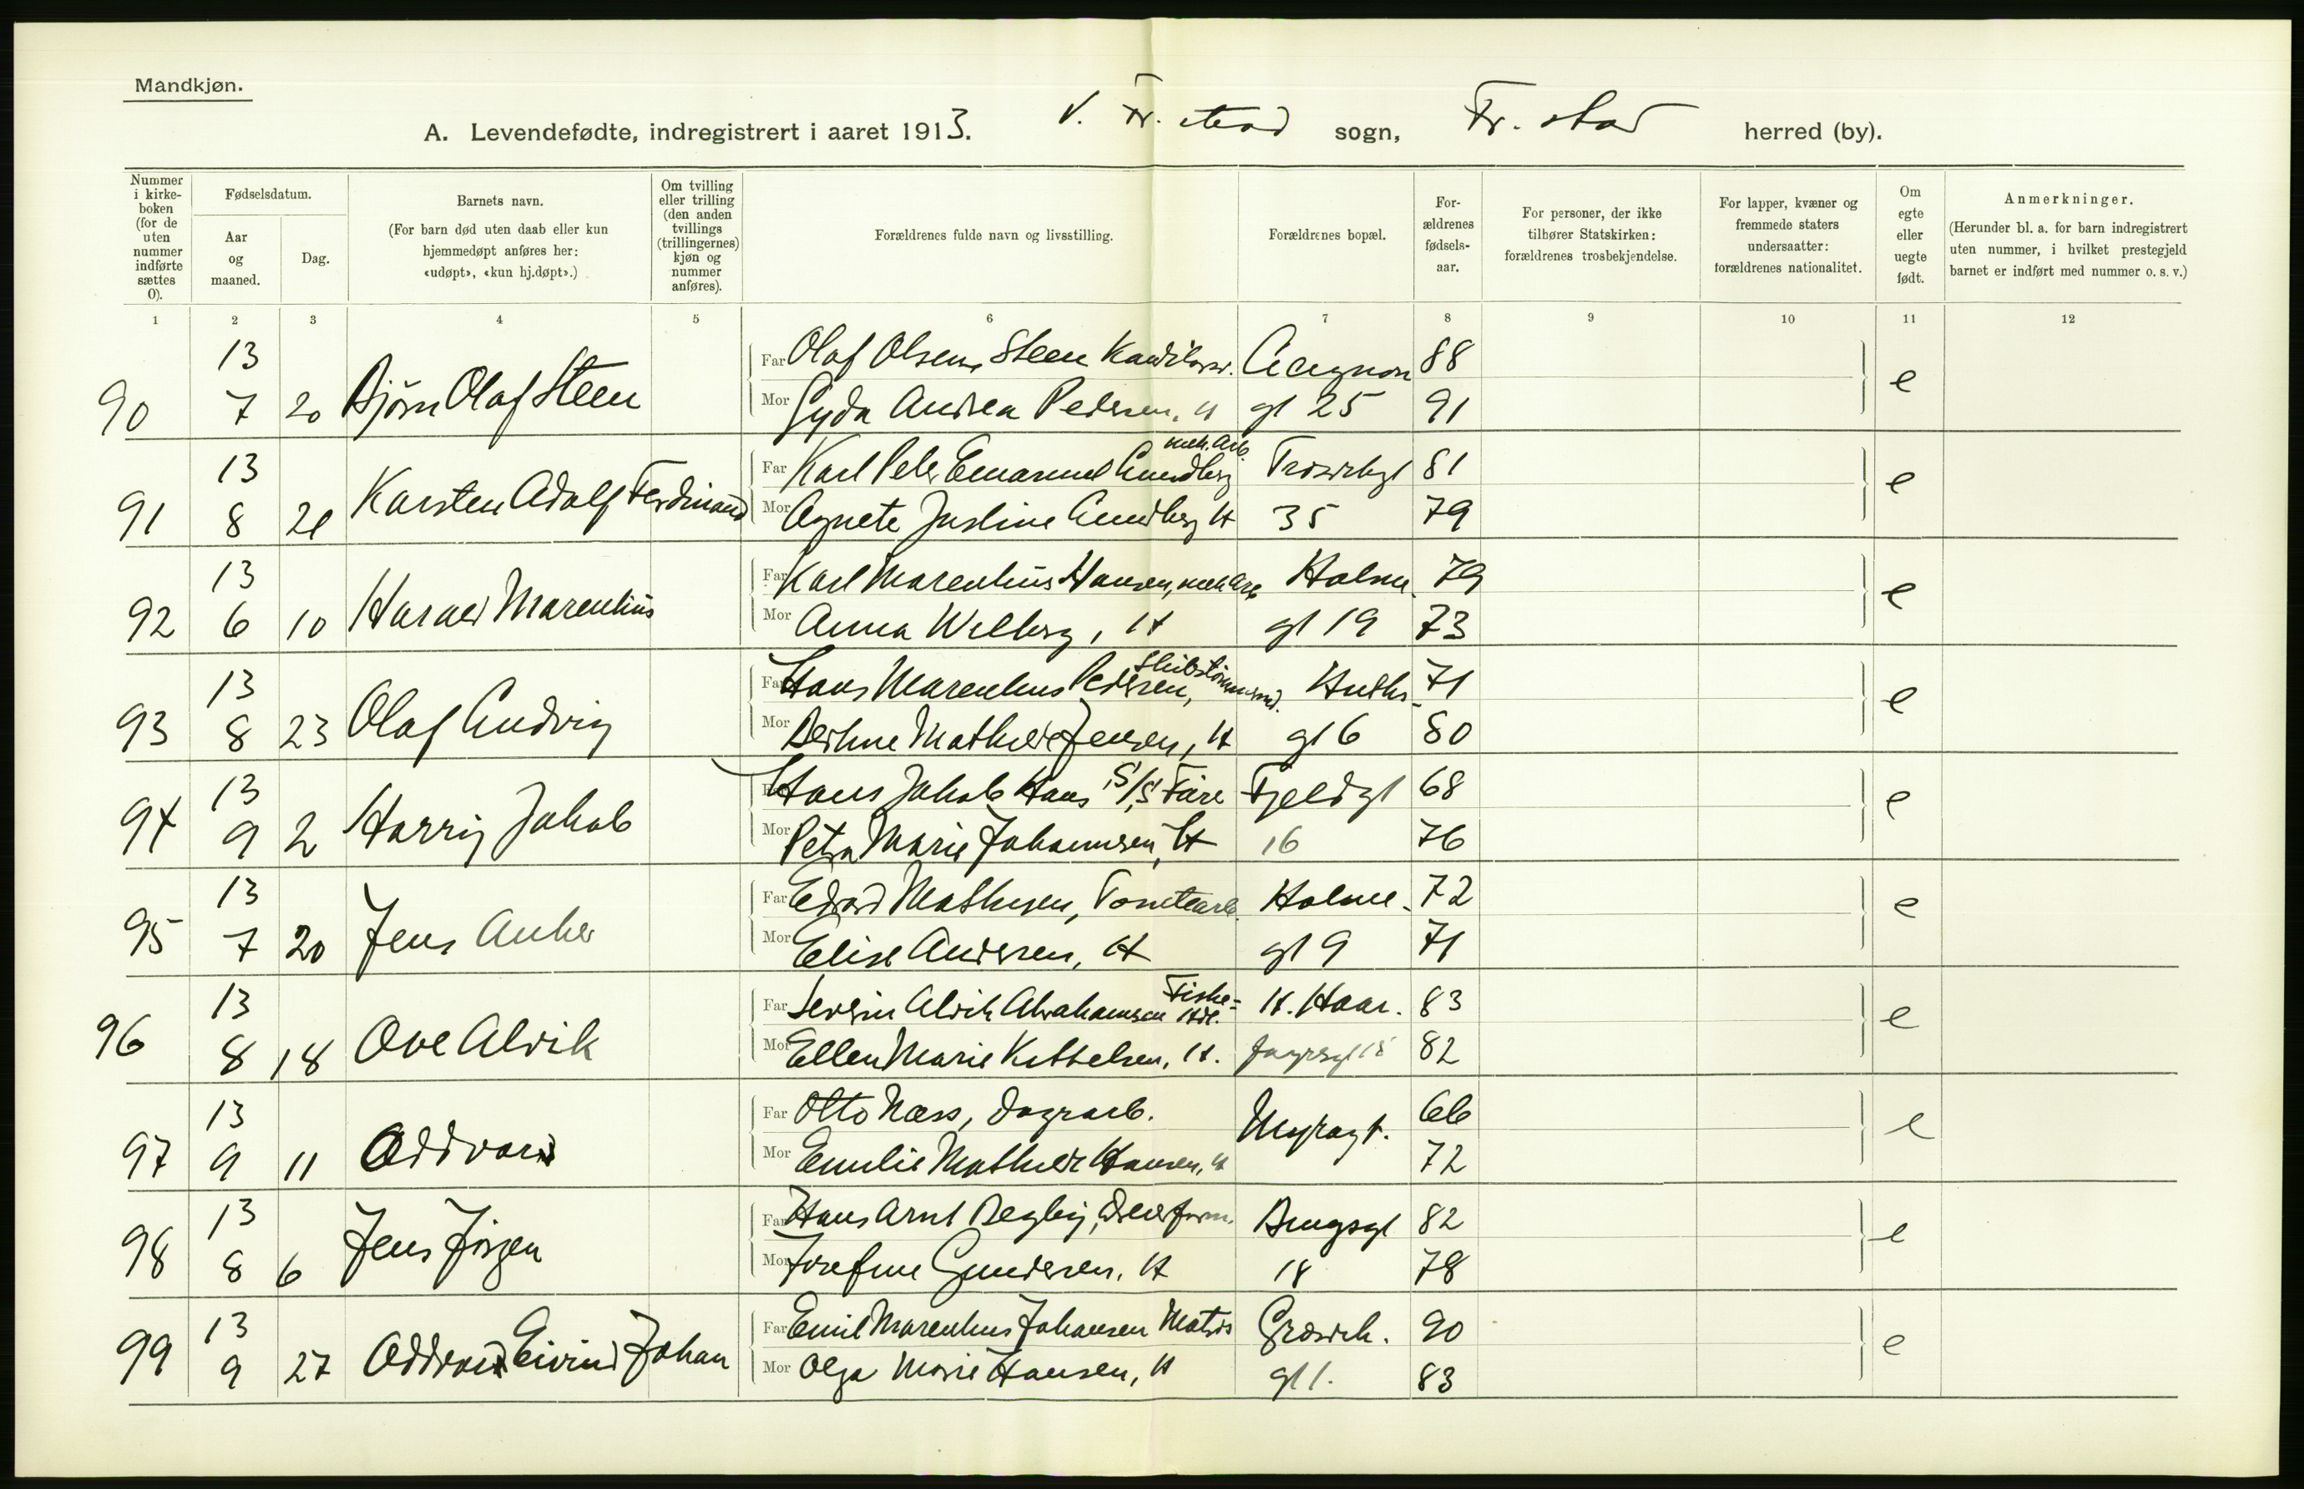 Mandkjøn.
A. Levendefødte, indregistrert i aaret 1913. V. Fr.stad sogn, Fr.stad herred (by).
Nummer i kirkeboken (for de uten nummer indførte sættes 0).
Fødselsdatum.
Aar og maaned.
Dag.
Barnets navn.
(For barn død uten daab eller kun hjemmedøpt anføres her: «udøpt», «kun hj.døpt».)
Om tvilling eller trilling (den anden tvillings (trillingernes) kjøn og nummer anføres).
Forældrenes fulde navn og livsstilling.
Forældrenes bopæl.
Forældrenes fødselsaar.
For personer, der ikke tilhører Statskirken: forældrenes trosbekjendelse.
For lapper, kvæner og fremmede staters undersaatter: forældrenes nationalitet.
Om egte eller uegte født.
Anmerkninger.
(Herunder bl. a. for barn indregistrert uten nummer, i hvilket prestegjeld barnet er indført med nummer o. s. v.)
1 2 3 4 5 6 7 8 9 10 11 12
90 13 7 20 Bjørn Olaf Steen Far Olaf Olsen Steen 88 e
Mor Gyda Andrea Pedersen, H gt 25 91
91 13 8 21 Karsten Adolf Ferdinand Far Karl Peter Emanuel Lundberg mek. Arb. 81 e
Mor Agnete Justine Lundberg H 35 79
92 13 6 10 Harald Marentius Far Karl Marentius Hansen, mek Arb Holme- 79 e
Mor Anna Wilberg, H gt 19 73
93 13 8 23 Olaf Ludvig Far Hans Marentius Pedersen, Skibstømmermd. Huths- 71 e
Mor Berthine Mathilde Jensen, H gt 6 80
94 13 9 2 Harry Jakob Far Hans Jakob Hans S/S Fjeldgt 68 e
Mor Petra Marie Johannsen, H 16 76
95 13 7 20 Jens Anker Far Edvard Mathisen, Tomtearb. Holme- 72 e
Mor Elise Andersen, H gt 9 71
96 13 8 18 Ove Alvik Far Severin Alvik Abrahamsen Fiske= Hdl. H. Haar. 83 e
Mor Ellen Marie Kittelsen, H. fagresgt 15 82
97 13 9 11 Oddvar Far Otto Næss, Dagarb. Myragt. 66 e
Mor Emilie Mathilde Hansen, H 72
98 13 8 6 Jens Jörgen Far Hans Arnt Begby, 82 e
Mor Josefine Gundersen, H 18 78
99 13 9 27 Oddvar Eivind Johan Far Emil Marentius Johansen Matros Græsvik. 90 e
Mor Olga Marie Hansen, H gt 1. 83